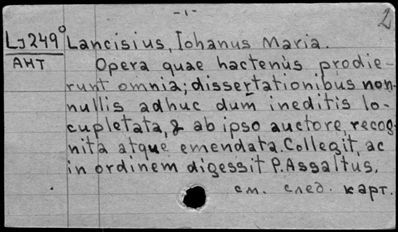 -1-
2
Lj249° Lancisius, Iohanus Maria.
АНТ Opera quae hactenùs prodie-
runt omnia; dissertationibus non-
nullis adhuc dum ineditis lo-
cupletata, & ab ipso auctore, recog-
nita atque emendata. Collegit, ac
in ordinem digessit P. Assaltus.
см. след. карт.